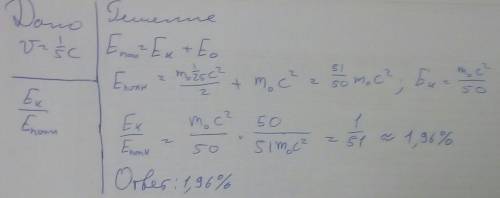 Дано
v = 1/5 c
Eк/Eполн
Решение
Eпол = Eк + E₀
Eполн = (m₀ 1/25 c²)/2 + m₀c² = 51/50 m₀c² ; Eк = m₀c²/50
Eк/Eполн = m₀c²/50 · 50/51m₀c² = 1/51 ≈ 1,96%
Ответ: 1,96%